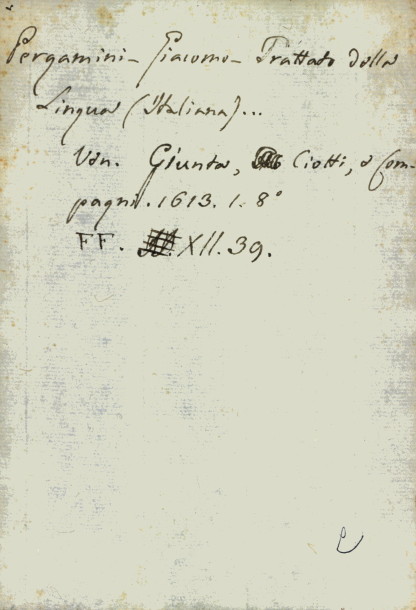 Pergamini - Giacomo - Trattato della
Lingua (Italiana)...
Ven. Giunta, Ciotti, e Com-
pagni. 1613. 1. 8°
FF. XII. 39.